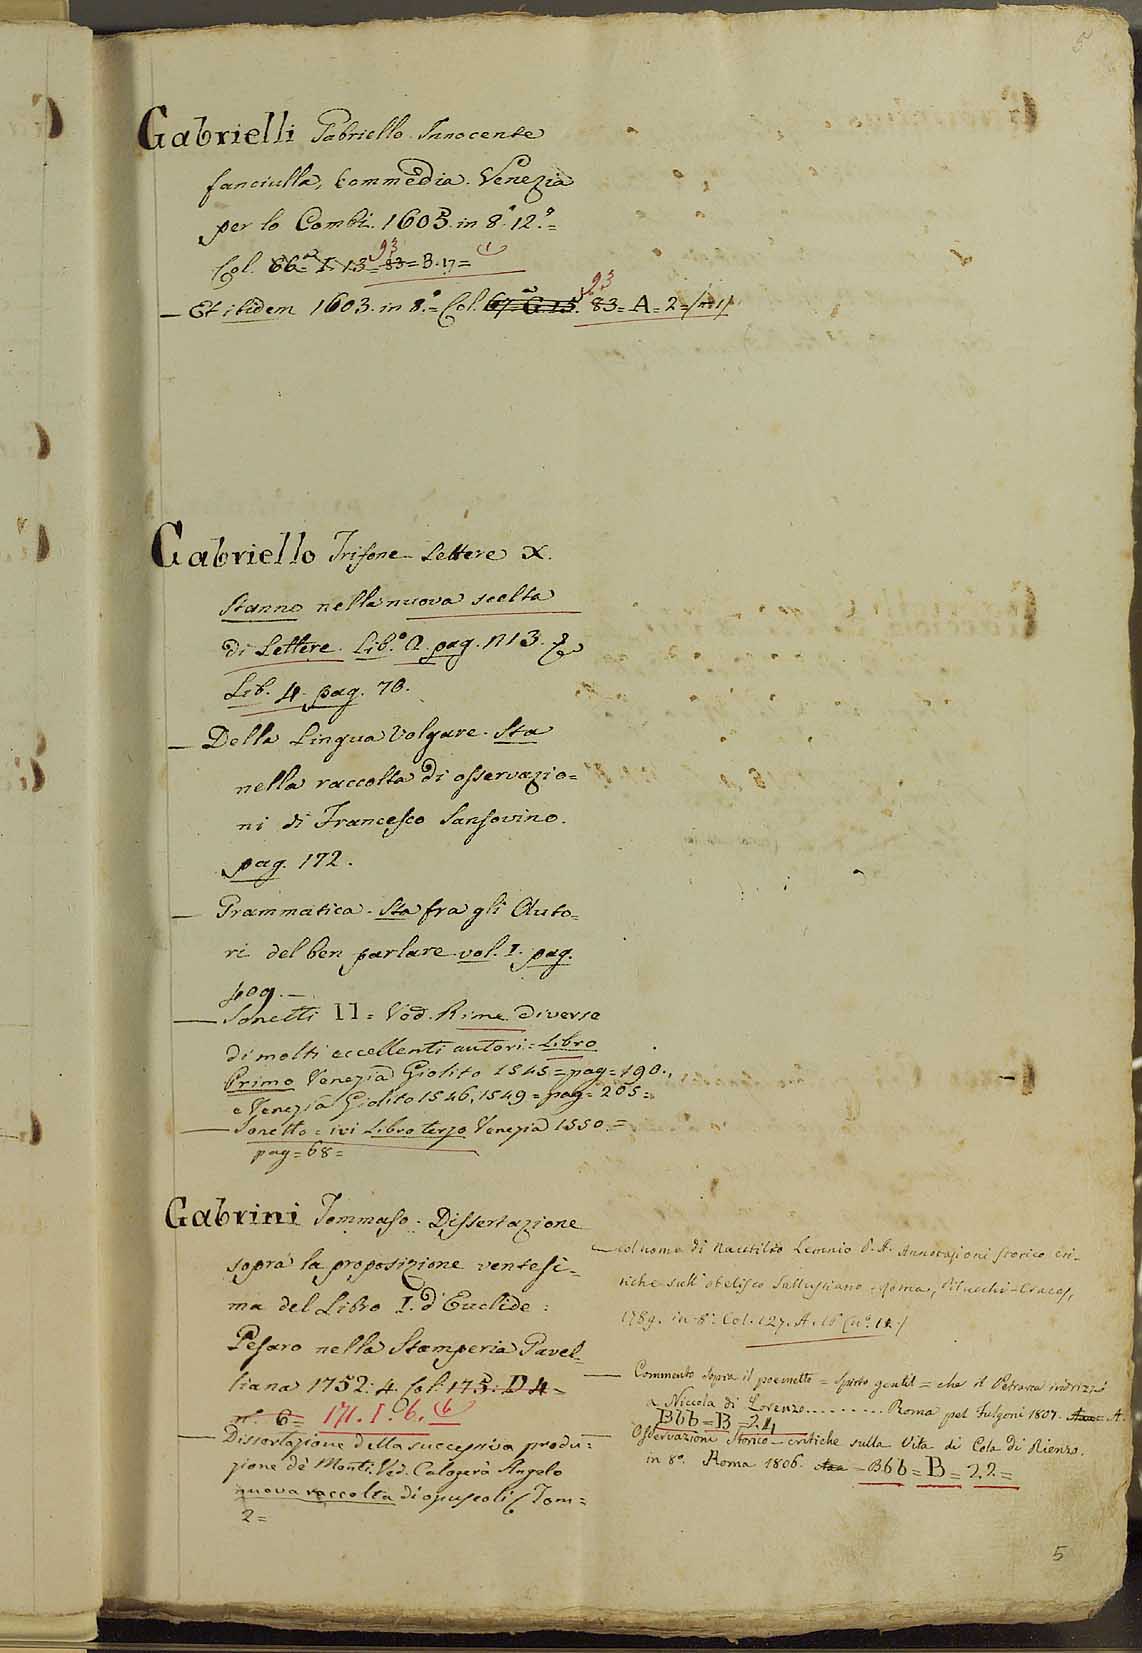 Gabrielli Gabriello. Innocente
fanciulla, commedia. Venezia
per lo Combi. 1605. in 8.º 12.º=
Col. 66= I. 13= 83 93 = B. 17= (1
— Et ibidem 1603. in 8.º= Col. 67. G. 15. 83 93 = A= 2=(nº 1)
Gabriello Trifone. Lettere X.
Stanno nella nuova scelta
di Lettere. Lib.º 2. pag. 113. &
Lib. 4. pag. 70.
— Della Lingua Volgare. Sta
nella raccolta di osservazio=
ni di Francesco Sansovino.
pag. 172.
— Grammatica. Sta fra gli Auto=
ri del ben parlare vol. I. pag.
409.—
— Sonetti II = Ved. Rime diverse
di molti eccellenti autori = Libro
Primo Venezia Giolito 1545 = pag = 190.,
e Venezia Giolito 1546, 1549 = pag = 205=
— Sonetto = ivi Libro terzo Venezia 1550 =
pag = 68 =
Gabrini Tommaso. Dissertazione
sopra la proposizione ventesi=
ma del Libro I. d'Euclide:
Pesaro nella Stamperia Gavel=
liana 1752: 4. Col. 175: D 4=
nº. 6= 171. I. 6. (6
— Dissertazione della successiva produ=
zione de' Monti. Ved. Calogerà Angelo
nuova raccolta di opuscoli (Tom=
2=
— col nome di Nautilio Lemnio P. A. Annotazioni storico cri-
tiche sull'obelisco Sallustiano. Roma, Pilucchi-Cracas,
1789. in 8º. Col. 127. A. 16 (nº. 12.)
— Commento sopra il poemetto = Spirto gentil = che il Petrarca indrizzò
a Niccola di Lorenzo......... Roma pel Fulgoni 1807. Aaa = A.
Bbb = B = 24
— Osservazioni storico-critiche sulla Vita di Cola di Rienzo.
in 8º. Roma 1806. Aaa — Bbb = B = 22 =
5